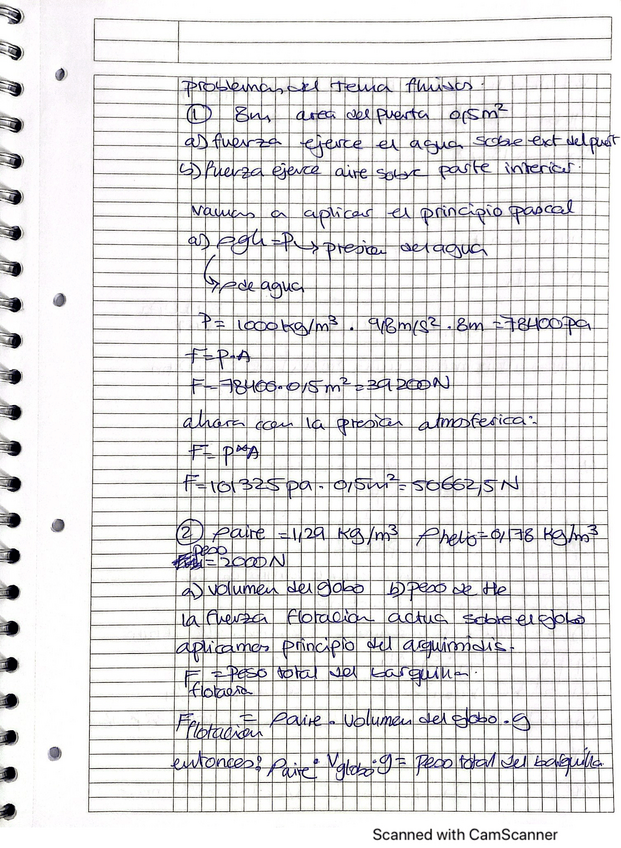 problemas del tema fluidos.
① 8m area del puerta 0,5m²
a) fuerza ejerce el agua sobre ext del puert
b) fuerza ejerce aire sobre parte interior.
vamos a aplicar el principio pascal
a) ρgh = P → presion del agua
↳ ρ de agua
P = 1000kg/m³ . 9,8m/s² . 8m = 78400pa
f = P·A
F = 78400 · 0,5m² = 39200N
ahora con la presion atmosferica:
F = P·A
F = 101325pa · 0,5m² = 50662,5N
② ρaire = 1,29 Kg/m³ ρhelio = 0,178 Kg/m³
Peso = 2000N
a) volumen del globo b) peso de He
la fuerza flotacion actua sobre el globo
aplicamos principio del arquimidis.
F flotacion = Peso total del barquilla.
F flotacion = ρaire · volumen del globo · g
entonces: ρaire · Vglobo · g = peso total del barquilla
Scanned with CamScanner